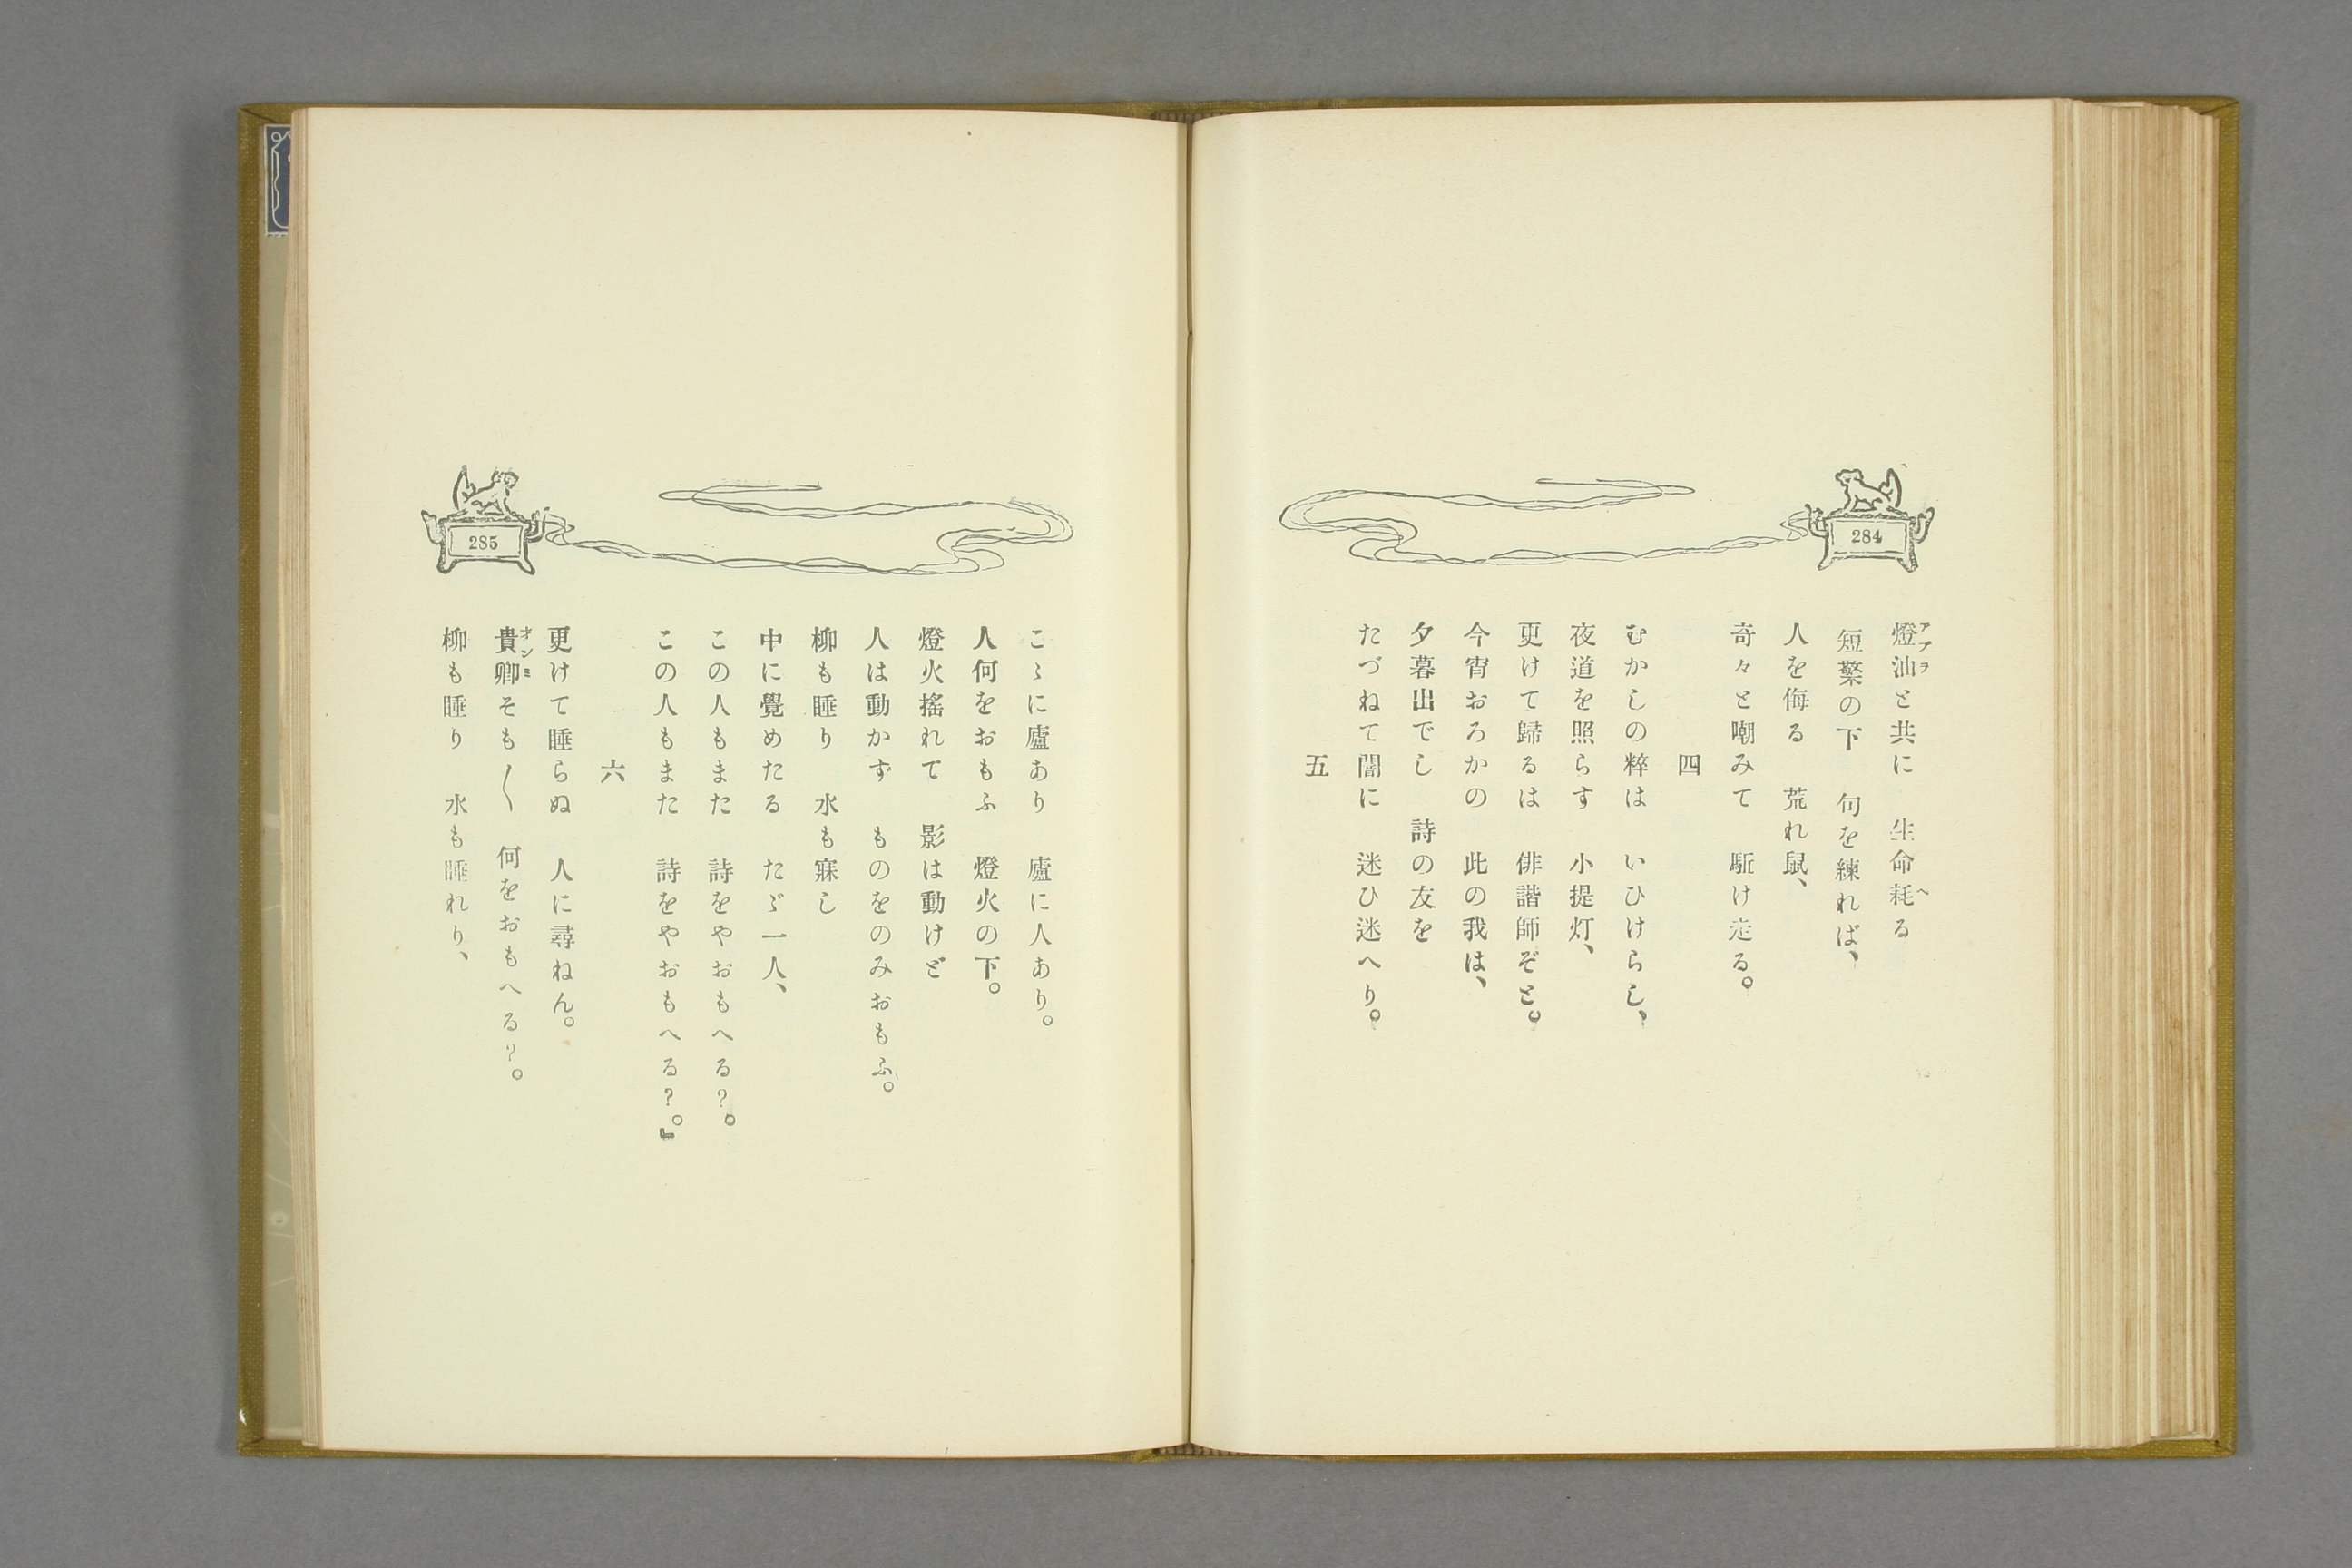 284
燈油と共に　生命耗る
短檠の下　句を練れば、
人を侮る　荒れ鼠、
奇々と嘲みて　駈け走る。
四
むかしの粹は　いひけらし、
夜道を照らす　小提灯、
更けて歸るは　俳諧師ぞと。
今宵おろかの　此の我は、
夕暮出でし　詩の友を
たづねて闇に　迷ひ迷へり。
五
285
こゝに廬あり　廬に人あり。
人何をおもふ　燈火の下。
燈火搖れて　影は動けど
人は動かず　ものをのみおもふ。
柳も睡り　水も寐し
中に覺めたる　たゞ一人、
この人もまた　詩をやおもへる？。
この人もまた　詩をやおもへる？。』
六
更けて睡らぬ　人に尋ねん。
貴卿そも〳〵　何をおもへる？。
柳も睡り　水も睡れり、